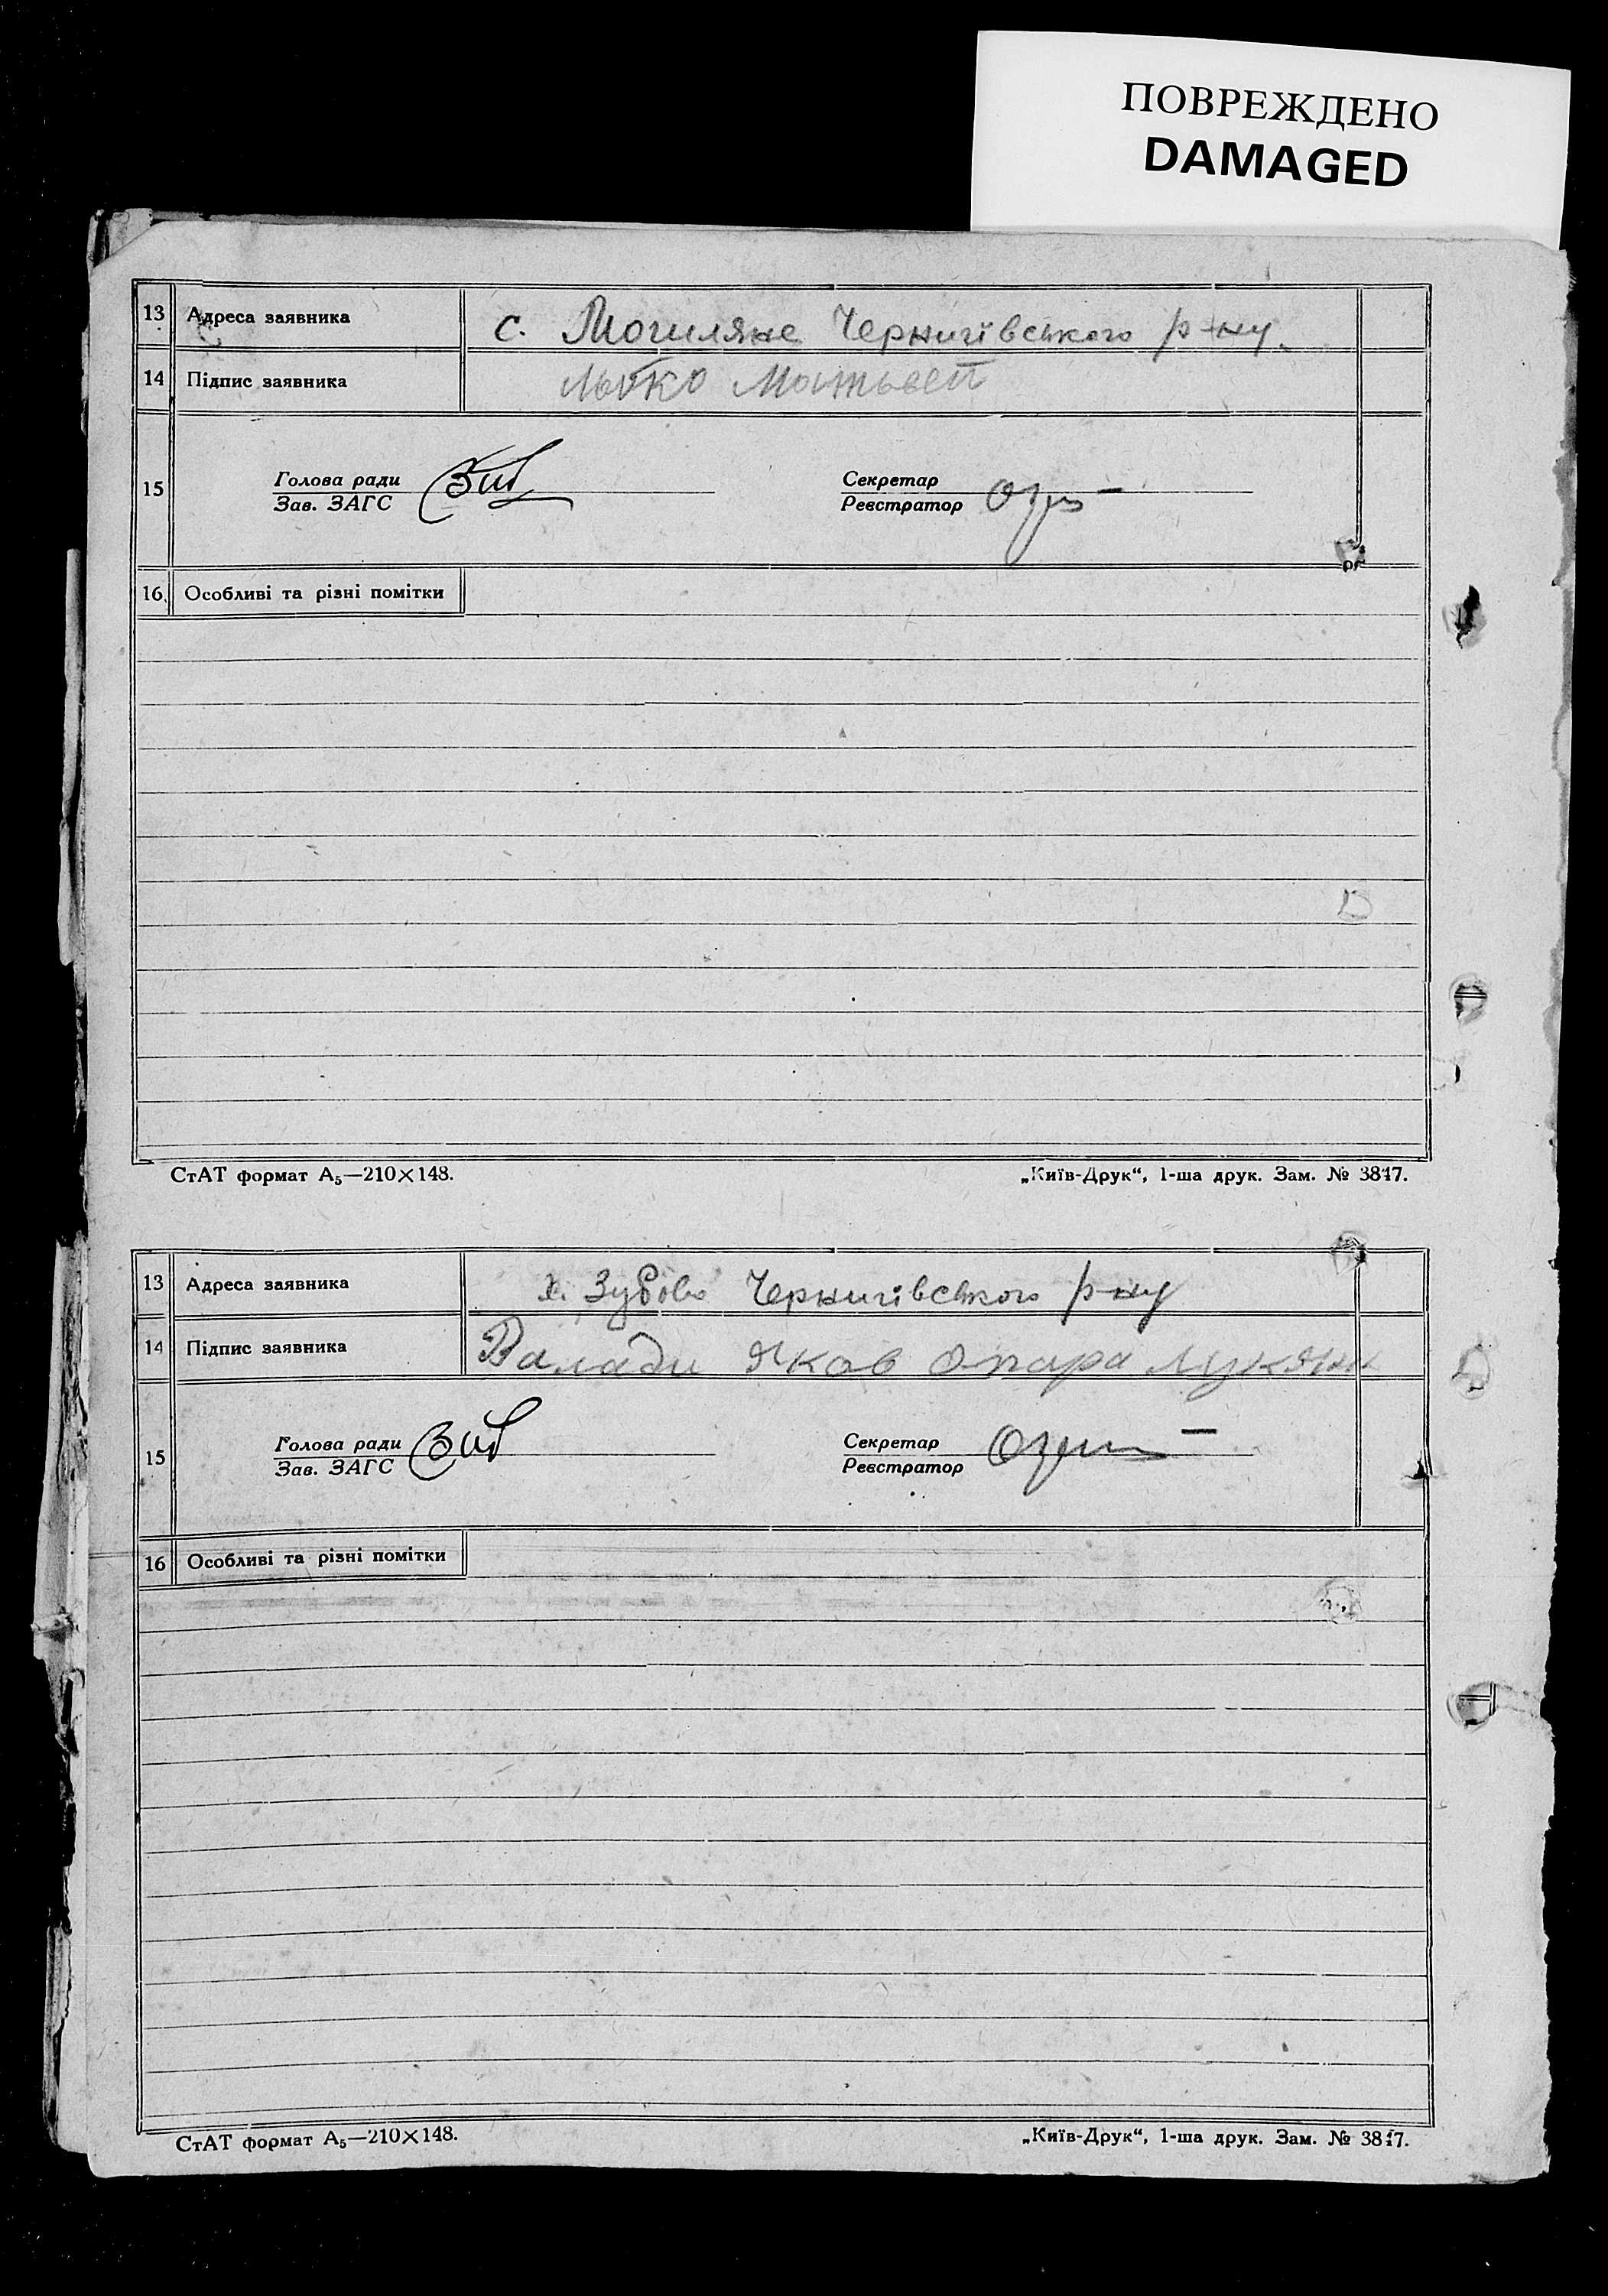 ПОВРЕЖДЕНО
DAMAGED
13 Адреса заявника с. Могиляне Чернигівського р-ну.
14 Підпис заявника Матьвей
15 Голова ради Секретар
Зав. ЗАГС Реєстратор
16. Особливі та різні помітки
СтАТ формат А₅—210×148. „Київ-Друк“, 1-ша друк. Зам. № 3847.
13 Адреса заявника х. Зубово Чернигівського р-ну
14 Підпис заявника Валади Яков Опара Лукяни
15 Голова ради Секретар
Зав. ЗАГС Реєстратор
16 Особливі та різні помітки
СтАТ формат А₅—210×148. „Київ-Друк“, 1-ша друк. Зам. № 3847.